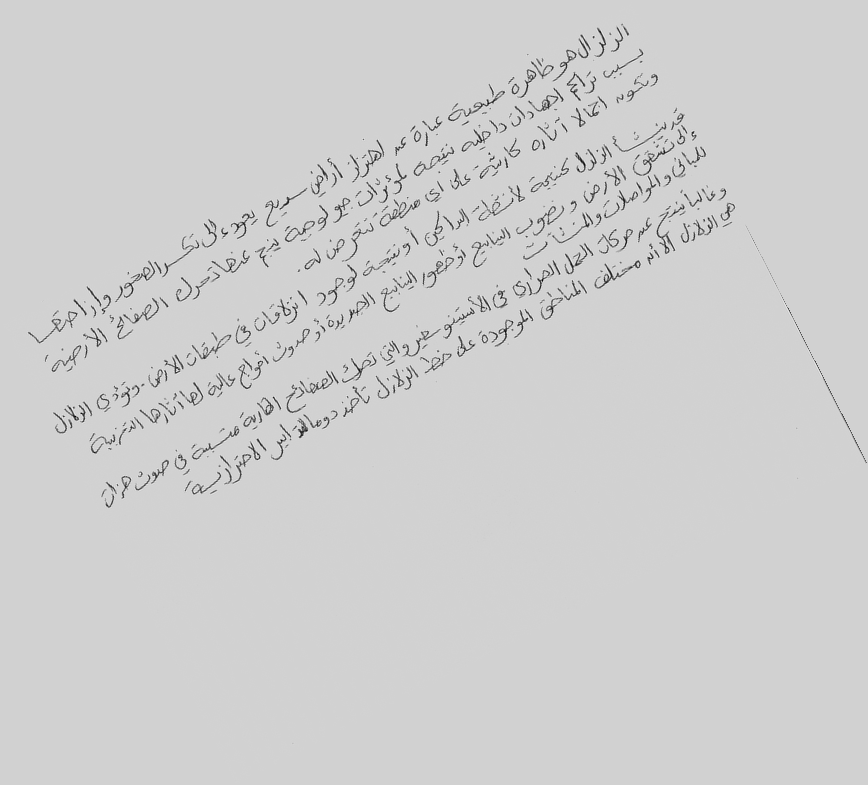 الزلزال هو ظاهرة طبيعية عبارة عن اهتزاز أرضي سريع يعود إلى تكسر الصخور وإزاحتها
بسبب تراكم اجهادات داخلية نتيجة لمؤثرات جيولوجية ينجم عنها تحرك الصفائح الأرضية
وتكون اجمالا آثاره كارثية على اي منطقة تتعرض له.
قد ينشأ الزلزال كنتيجة لأنشطة البراكين أو نتيجة لوجود انزلاقات في طبقات الأرض. وتؤدي الزلازل
إلى تشقق الأرض ونضوب الينابيع أو ظهور الينابيع الجديدة أو حدوث أمواج عالية لها آثارها التخريبية
للمباني والمواصلات والمنشآت
وغالبا ينتج عن حركات الحمل الحراري في الأسثينوسفير والتي تحرك الصفائح القارية متسببة في حدوث هزات
هي الزلازل الا أنه مختلف المناطق الموجودة على خط الزلازل تأخذ دوما التدابير الاحترازية